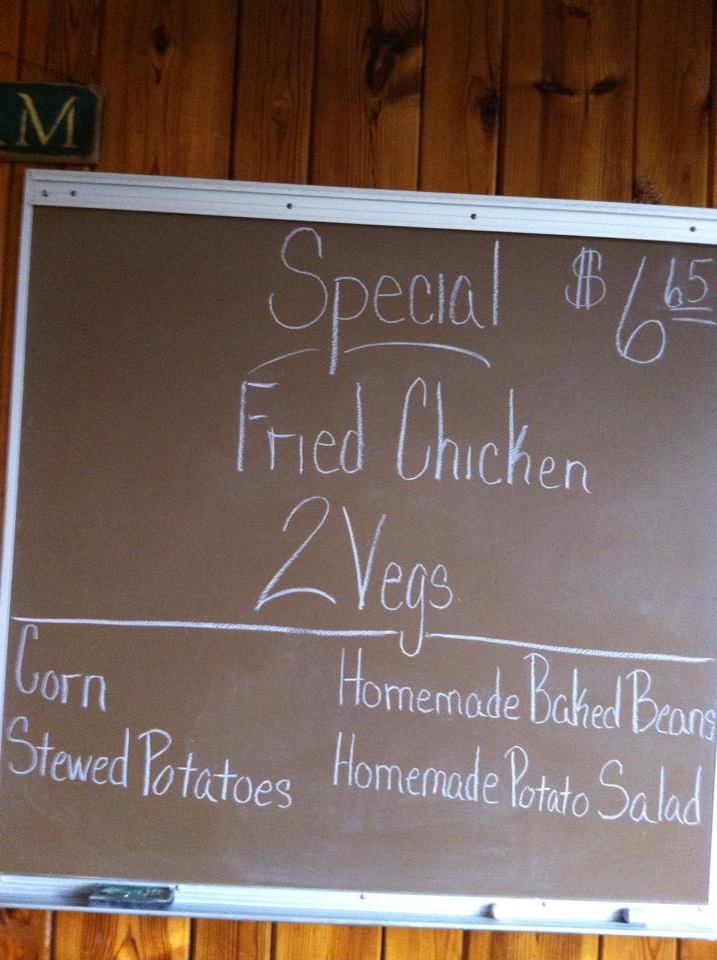 AM
Special $6.65
Fried Chicken
2 Vegs.
Corn
Homemade Baked Beans
Stewed Potatoes
Homemade Potato Salad